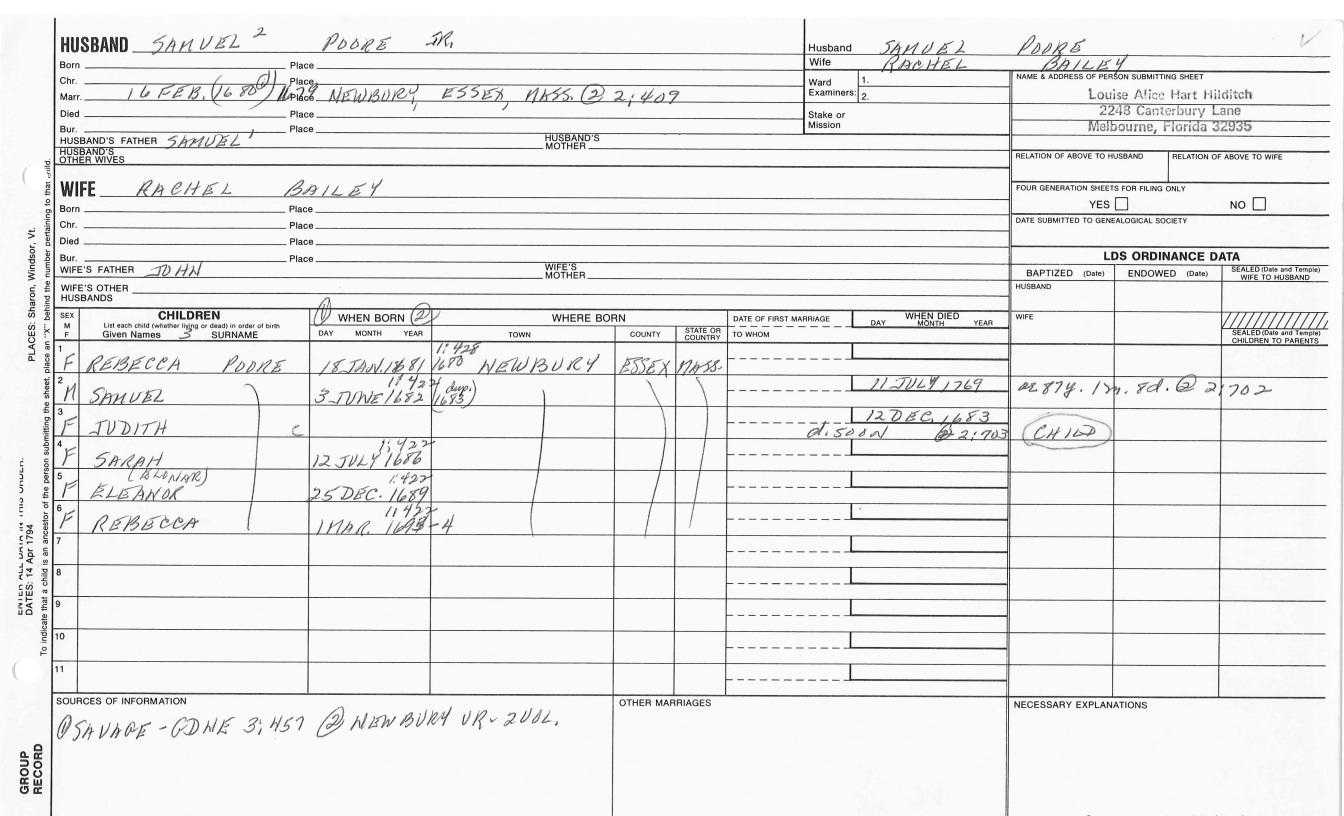 HUSBAND SAMUEL 2 POORE JR.
Born Place
Chr. Place
Marr. 16 FEB. (1680 ①) 1679 Place NEWBURY, ESSEX, MASS. ② 2:409
Died Place
Bur. Place
HUSBAND'S FATHER SAMUEL 1 HUSBAND'S MOTHER
HUSBAND'S OTHER WIVES
Husband SAMUEL POORE
Wife RACHEL BAILEY
Ward Examiners: 1.
2.
Stake or Mission
NAME & ADDRESS OF PERSON SUBMITTING SHEET
Louise Alice Hart Hilditch
2248 Canterbury Lane
Melbourne, Florida 32935
RELATION OF ABOVE TO HUSBAND RELATION OF ABOVE TO WIFE
FOUR GENERATION SHEETS FOR FILING ONLY
YES NO
DATE SUBMITTED TO GENEALOGICAL SOCIETY
WIFE RACHEL BAILEY
Born Place
Chr. Place
Died Place
Bur. Place
WIFE'S FATHER JOHN WIFE'S MOTHER
WIFE'S OTHER HUSBANDS
LDS ORDINANCE DATA
BAPTIZED (Date) ENDOWED (Date) SEALED (Date and Temple) WIFE TO HUSBAND
HUSBAND
WIFE
SEALED (Date and Temple) CHILDREN TO PARENTS
SEX M F
CHILDREN
List each child (whether living or dead) in order of birth
Given Names 3 SURNAME
① WHEN BORN ②
DAY MONTH YEAR
WHERE BORN
TOWN COUNTY STATE OR COUNTRY
DATE OF FIRST MARRIAGE
TO WHOM
WHEN DIED
DAY MONTH YEAR
1:428
1 F REBECCA POORE 18 JAN. 1681 1680 NEWBURY ESSEX MASS.
1:422 (dup. 1683)
2 M SAMUEL 3 JUNE 1682 11 JULY 1769 ae. 87y. 1m. 8d. ② 2:702
3 F JUDITH C 12 DEC. 1683
d. soon ② 2:703 CHILD
1:422
4 F SARAH 12 JULY 1686
(ELONAR) 1:422
5 F ELEANOR 25 DEC. 1689
1:422
6 F REBECCA 1 MAR. 1693-4
7
8
9
10
11
SOURCES OF INFORMATION
① SAVAGE - GDNE 3:457 ② NEWBURY VR - 2 VOL.
OTHER MARRIAGES
NECESSARY EXPLANATIONS
PLACES: Sharon, Windsor, Vt.
ENTER ALL DATA IN THIS ORDER:
DATES: 14 Apr 1794
To indicate that a child is an ancestor of the person submitting the sheet, place an "X" behind the number pertaining to that child.
GROUP RECORD